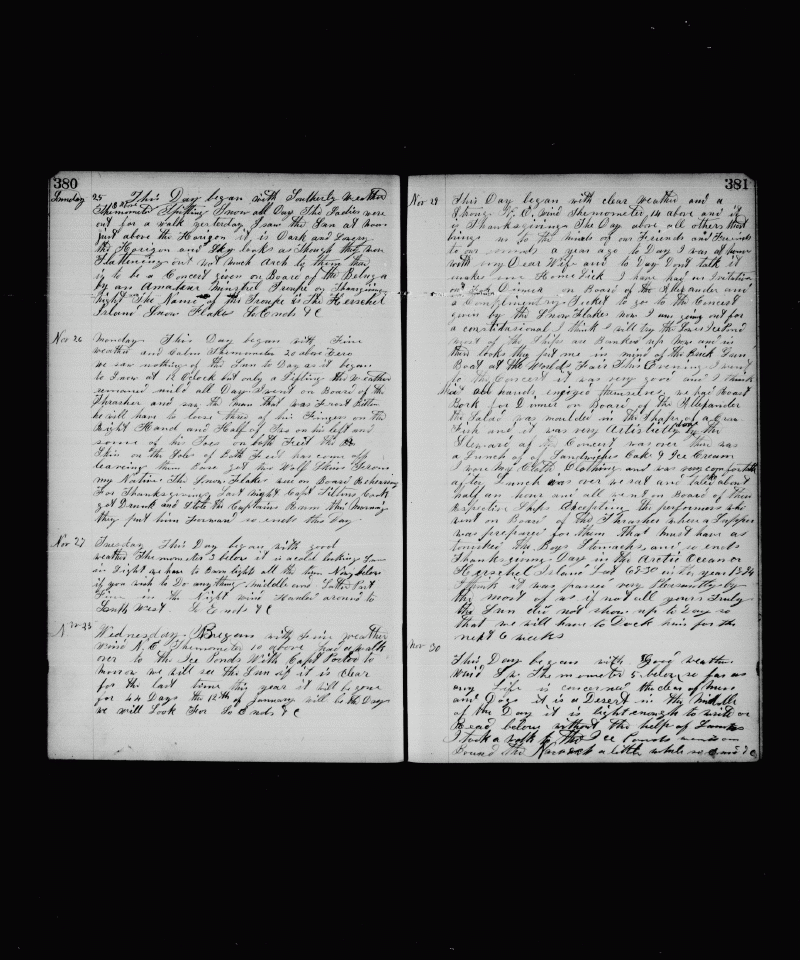 380
Sunday 25 This Day began with Southerly Weather
Thermometer 18 above Spitting Snow all Day The Ladies were
out for a walk yesterday I saw the Sun at Noon
just above the Horizon it is Dark and Hazy
the Horizon and Sky looks as Though they were
Flattening out not much Arch to them there
is to be a Concert given on Board of the Beluga
by an Amateur Minstrel Troupe on Thanksgiving
Night The Name of the Troupe is The Herschel
Island Snow Flakes So Ends &C
Nov 26 Monday This Day began with Fine
weather and Calm Thermometer 20 above Zero
we saw nothing of the Sun to Day as it began
to Snow at 12 O'clock but only a Sifting the Weather
remained mild all Day I went on Board of the
Thrasher and saw the man that was Frost Bitten
he will have to loose three of his Fingers on the
Right Hand and Half of on his left and
some of his Toes on both Feet the
Skin on the Sole of Both Feet has come off
leaving them Bare got two Wolf Skins From
my Native The Snow Flakes were on Board Rehersing
For Thanksgiving Last Night Capt Tiltons Cook
got Drunk and Stole the Captains Rum this Morning
they put him Forward so ends this Day
Nov 27 Tuesday This Day began with good
weather Thermometer 3 below it is a cold looking Sun
in Sight we have to Burn light all the time Now below
if you wish to Do any thing middle and Latter Part
Fine in the Night wind Hauled around to
South West So Ends &C
Nov 28 Wednesday Begins with Fine weather
Wind N.E. Thermometer 10 above had a walk
over to the Ice Ponds With Capt Porter to
morrow we will see the Sun if it is clear
for the last time this year it will be gone
for 44 Days the 12th of January will be the Day
we will Look For So Ends &C
381
Nov 29 This Day began with clear weather and a
Strong N.E. wind Thermometer 14 above and it
is Thanksgiving The Day above all others that
brings us to the minds of our Friends and Friends
to our a year ago to Day I was at home
with my Dear Wife and to Day Dont talk it
makes me Home Sick I have had an Invitation
out to Dinner on Board of the Alexander and
a Complimentry Ticket to go to the Concert
given by the Snow Flakes now I am going out for
a constitutional I think I will try the Ice Pond
most of the Ships are Banked up Now and in
there looks they put me in mind of the
Boat at the Worlds Fair This Evening I went
to the Concert it was very good and I think
that all hands injoyed themselves we had Roast
Pork for Dinner on Board of the Alexander
the Salad was moulded in the Shape of a
Fish and it was very Artistically done by the
Steward after the Concert was over there was
a Lunch of Sandwiches Cake & Ice Cream
I wore my Cloth Clothing and was very comfortable
after Lunch was over we sat and talked about
half an hour and all went on Board of their
respective Ships Excepting the performers who
went on Board of the Thrasher where a Supper
was prepared for them that must have as
tonished the Boys Stomachs and so ends
Thanksgiving Day in the Arctic Ocean or
Herschel Island Lat 69.30 in the year 1894
I think it was passed very Pleasantly by
the most of us if not all yours Truly
the Sun did not show up to Day so
that we will have to Dock him for the
next 6 weeks
Nov 30 This Day began with Good weather
Wind S.W. Thermometer 5 below so far as
any Life is concerned the of Men
and Dogs it is a Desert in the middle
of the Day it is light enough to write or
Read below without the help of Lamps
I took a walk to the Ice Ponds and
Round the a little while so ends &C